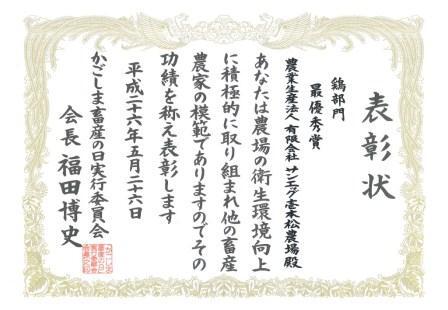 表彰状
鶏部門
最優秀賞
農業生産法人 有限会社 サンエッグ壱本松農場殿
あなたは農場の衛生環境向上
に積極的に取り組まれ他の畜産
農家の模範でありますのでその
功績を称え表彰します
平成二十六年五月二十六日
かごしま畜産の日実行委員会
会長 福田博史